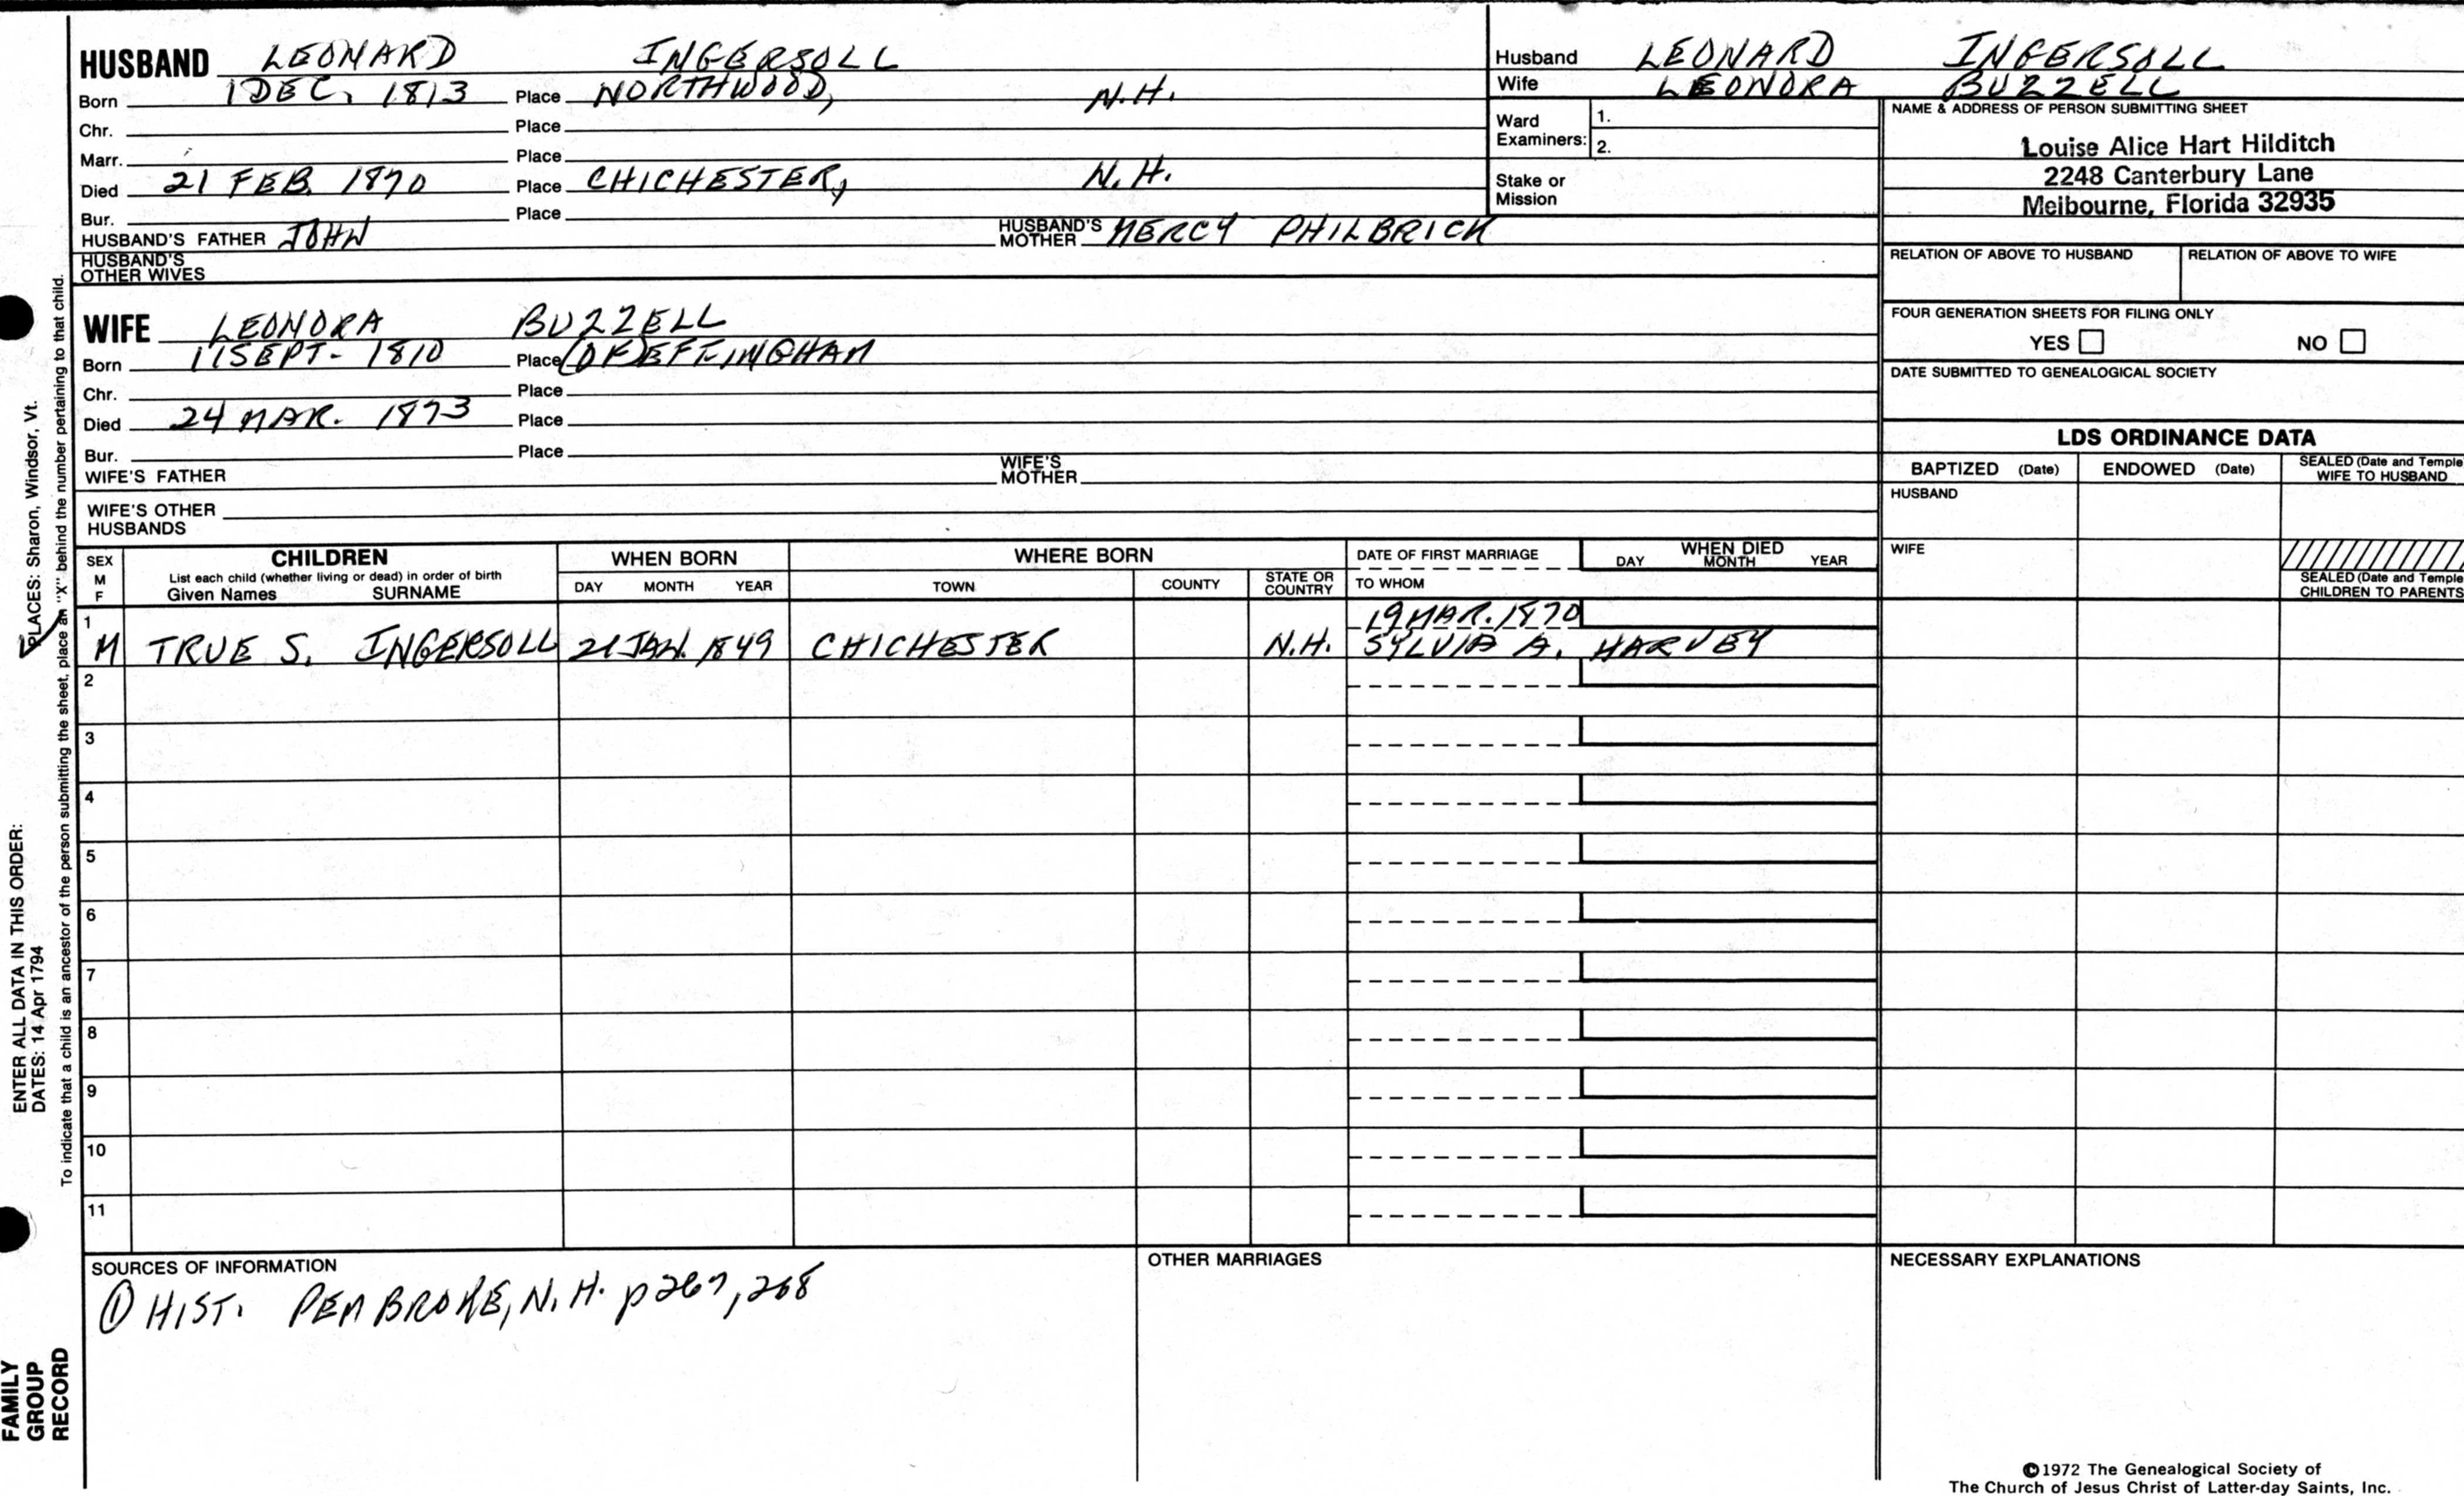 HUSBAND LEONARD INGERSOLL
Born 1 DEC. 1813 Place NORTHWOOD, N.H.
Chr. Place
Marr. Place
Died 21 FEB. 1870 Place CHICHESTER, N.H.
Bur. Place
HUSBAND'S FATHER JOHN HUSBAND'S MOTHER MERCY PHILBRICK
HUSBAND'S OTHER WIVES
WIFE LEONORA BUZZELL
Born 11 SEPT. 1810 Place (OF) EFFINGHAM
Chr. Place
Died 24 MAR. 1873 Place
Bur. Place
WIFE'S FATHER WIFE'S MOTHER
WIFE'S OTHER HUSBANDS
Husband LEONARD INGERSOLL
Wife LEONORA BUZZELL
Ward Examiners: 1.
2.
Stake or Mission
NAME & ADDRESS OF PERSON SUBMITTING SHEET
Louise Alice Hart Hilditch
2248 Canterbury Lane
Melbourne, Florida 32935
RELATION OF ABOVE TO HUSBAND RELATION OF ABOVE TO WIFE
FOUR GENERATION SHEETS FOR FILING ONLY
YES NO
DATE SUBMITTED TO GENEALOGICAL SOCIETY
LDS ORDINANCE DATA
BAPTIZED (Date) ENDOWED (Date) SEALED (Date and Temple WIFE TO HUSBAND
HUSBAND
WIFE
SEALED (Date and Temple
CHILDREN TO PARENTS
SEX M F CHILDREN WHEN BORN WHERE BORN DATE OF FIRST MARRIAGE WHEN DIED
List each child (whether living or dead) in order of birth
Given Names SURNAME DAY MONTH YEAR TOWN COUNTY STATE OR COUNTRY TO WHOM DAY MONTH YEAR
1 19 MAR. 1870
M TRUE S. INGERSOLL 21 JAN. 1849 CHICHESTER N.H. SYLVIA A. HARVEY
2
3
4
5
6
7
8
9
10
11
SOURCES OF INFORMATION
① HIST. PEMBROKE, N.H. p 267, 268
OTHER MARRIAGES
NECESSARY EXPLANATIONS
©1972 The Genealogical Society of
The Church of Jesus Christ of Latter-day Saints, Inc.
ENTER ALL DATA IN THIS ORDER:
DATES: 14 Apr 1794 PLACES: Sharon, Windsor, Vt.
To indicate that a child is an ancestor of the person submitting the sheet, place an "X" behind the number pertaining to that child.
FAMILY
GROUP
RECORD